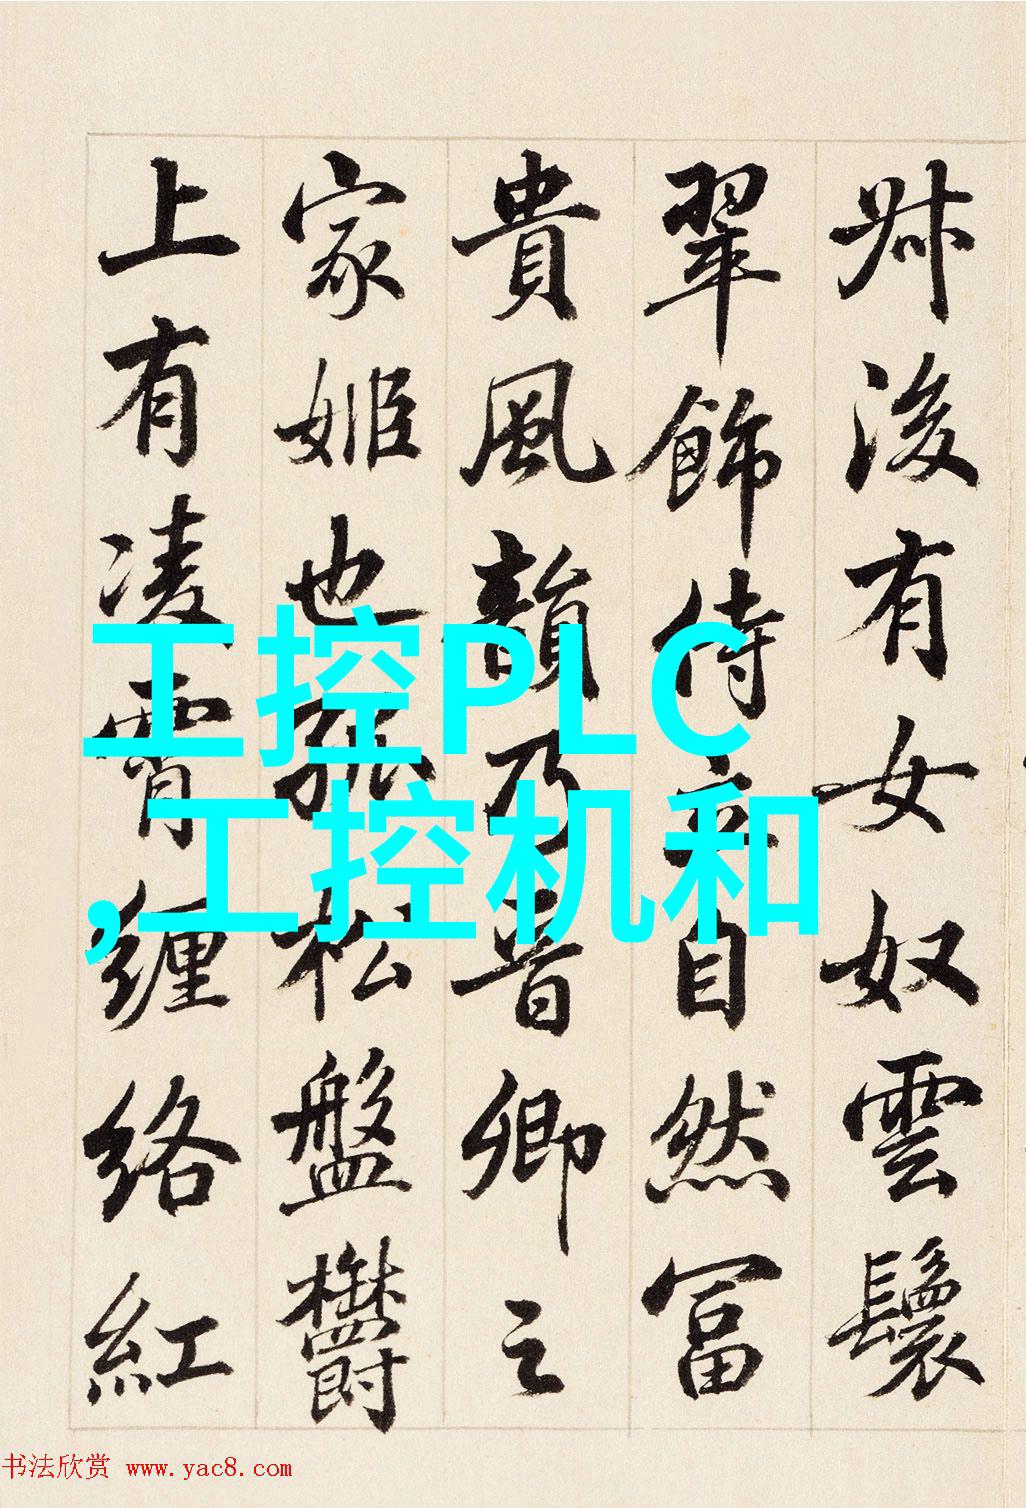 牀後有女奴雲鬟
翠飾侍立自然冨
貴風韻乃晋卿之
家姬也孤松盤欝
上有凌霄纏络紅
工控PLC
,工控机和
书法欣赏 www.yac8.com